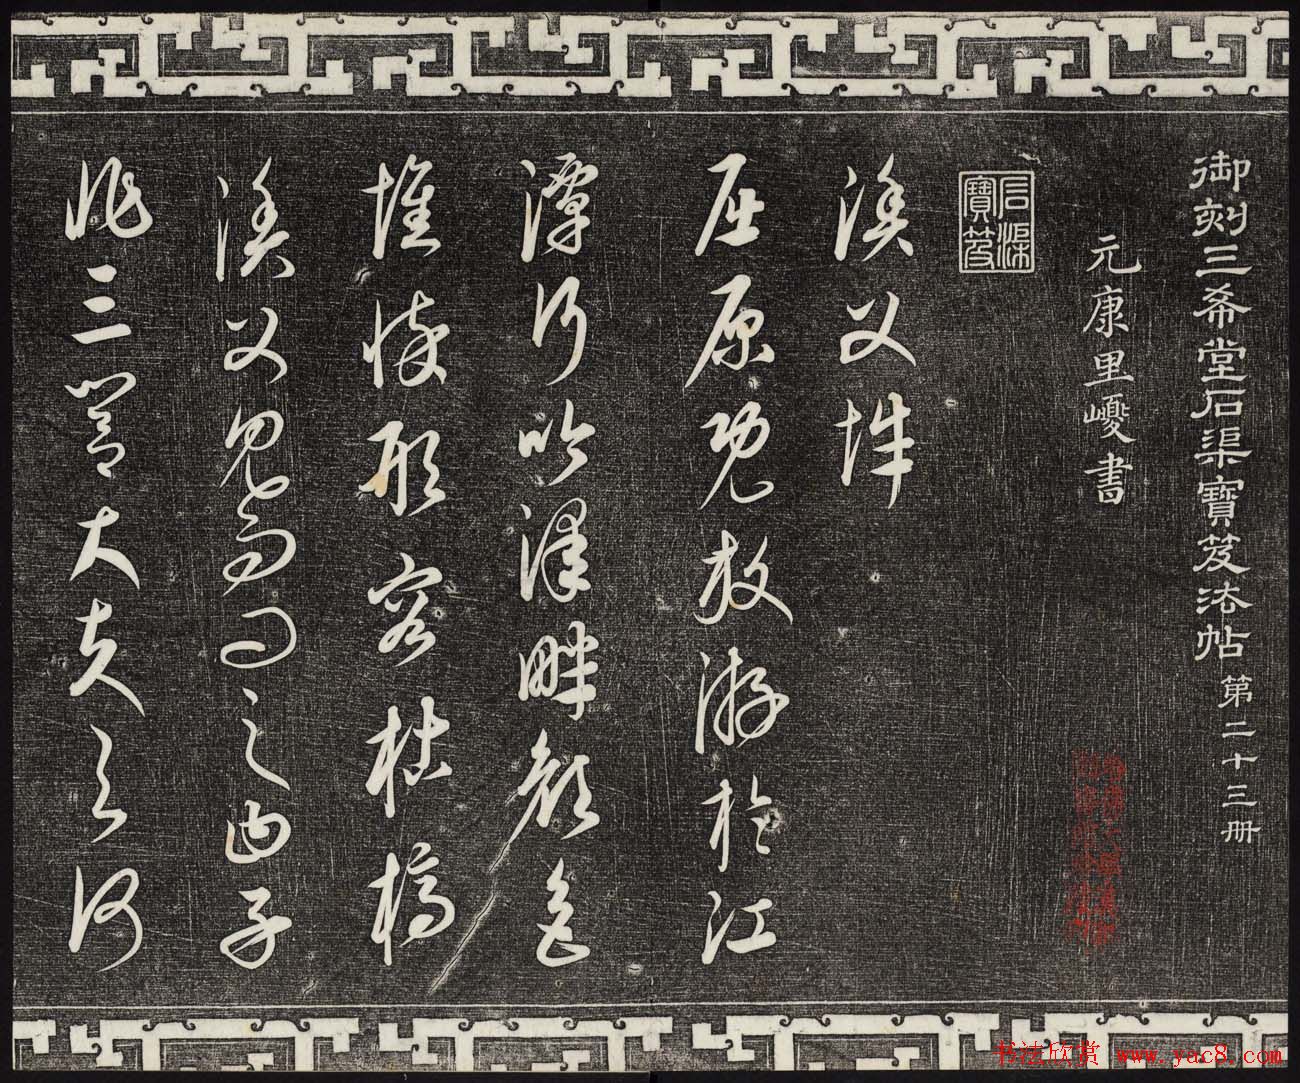 御刻三希堂石渠寶笈法帖第二十三冊
元康里巎書
石渠寶笈
漁父辭
屈原既放游於江
潭行吟澤畔顏色
憔悴形容枯槁
漁父見而問之曰子
非三閭大夫與何
书法欣赏 www.yac8.com